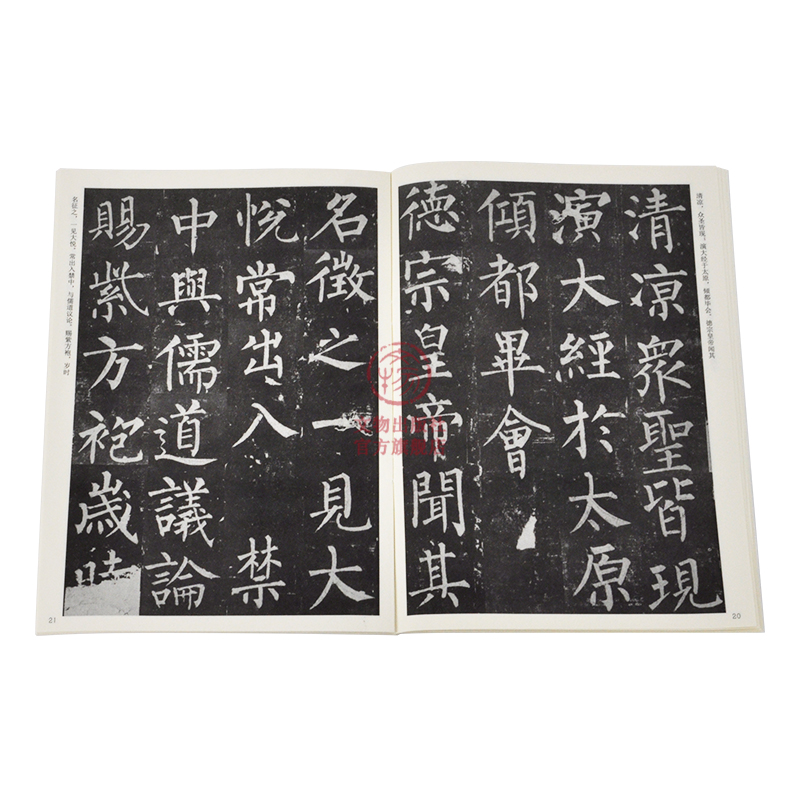 清凉，众圣皆现。演大经于太原，倾都毕会。德宗皇帝闻其
清凉衆聖皆現
演大經於太原
傾都畢會
德宗皇帝聞其
20
名徵之一見大
悅常出入禁
中與儒道議論
賜紫方袍歲時
名征之，一见大悦。常出入禁中，与儒道议论。赐紫方袍，岁时
21
文物出版社
官方旗舰店